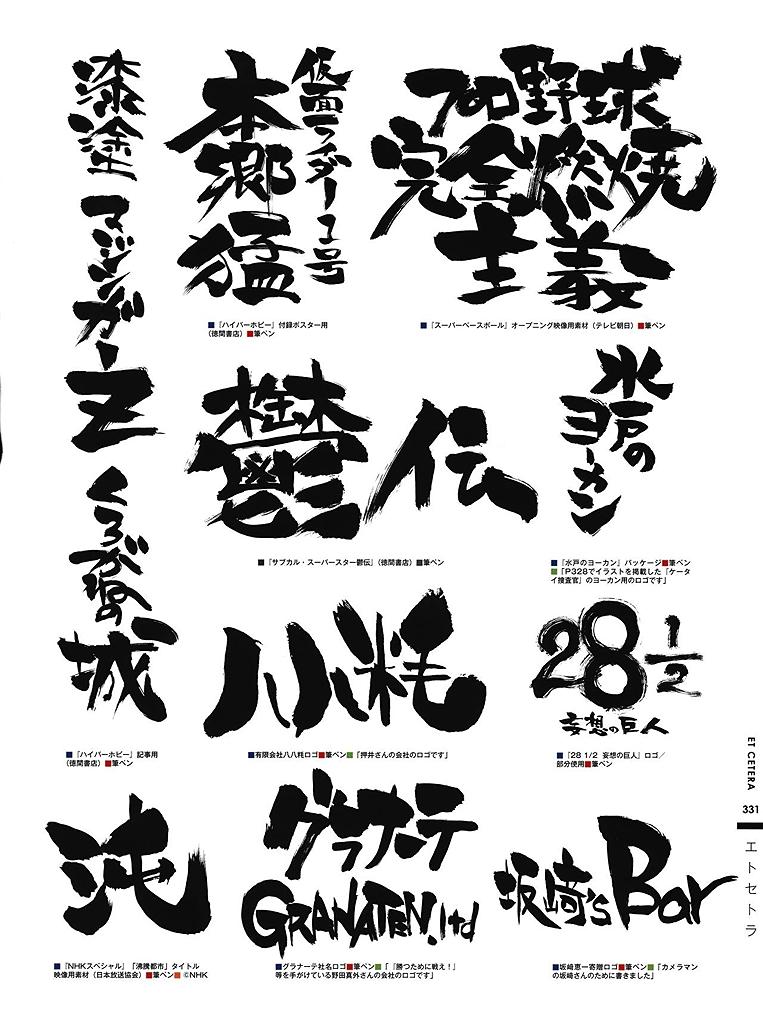 漆塗
マジンガーZ
くろがねの
城
■『ハイパーホビー』記事用
（徳間書店）■筆ペン
仮面ライダー1号
本郷猛
■『ハイパーホビー』付録ポスター用
（徳間書店）■筆ペン
プロ野球
完全燃焼
主義
■『スーパーベースボール』オープニング映像用素材（テレビ朝日）■筆ペン
鬱伝
■『サブカル・スーパースター鬱伝』（徳間書店）■筆ペン
水戸の
ヨーカン
■『水戸のヨーカン』パッケージ■筆ペン
■「P328でイラストを掲載した『ケータ
イ捜査官』のヨーカン用のロゴです」
八八粍
■有限会社八八粍ロゴ■筆ペン■「押井さんの会社のロゴです」
28 1/2
妄想の巨人
■『28 1/2 妄想の巨人』ロゴ／
部分使用■筆ペン
沌
■『NHKスペシャル』「沸騰都市」タイトル
映像用素材（日本放送協会）■筆ペン■©NHK
グラナーテ
GRANATEN.ltd
■グラナーテ社名ロゴ■筆ペン■「『勝つために戦え！』
等を手がけている野田真外さんの会社のロゴです」
坂崎's Bar
■坂崎恵一寄贈ロゴ■筆ペン■「カメラマン
の坂崎さんのために書きました」
ET CETERA
331
エトセトラ